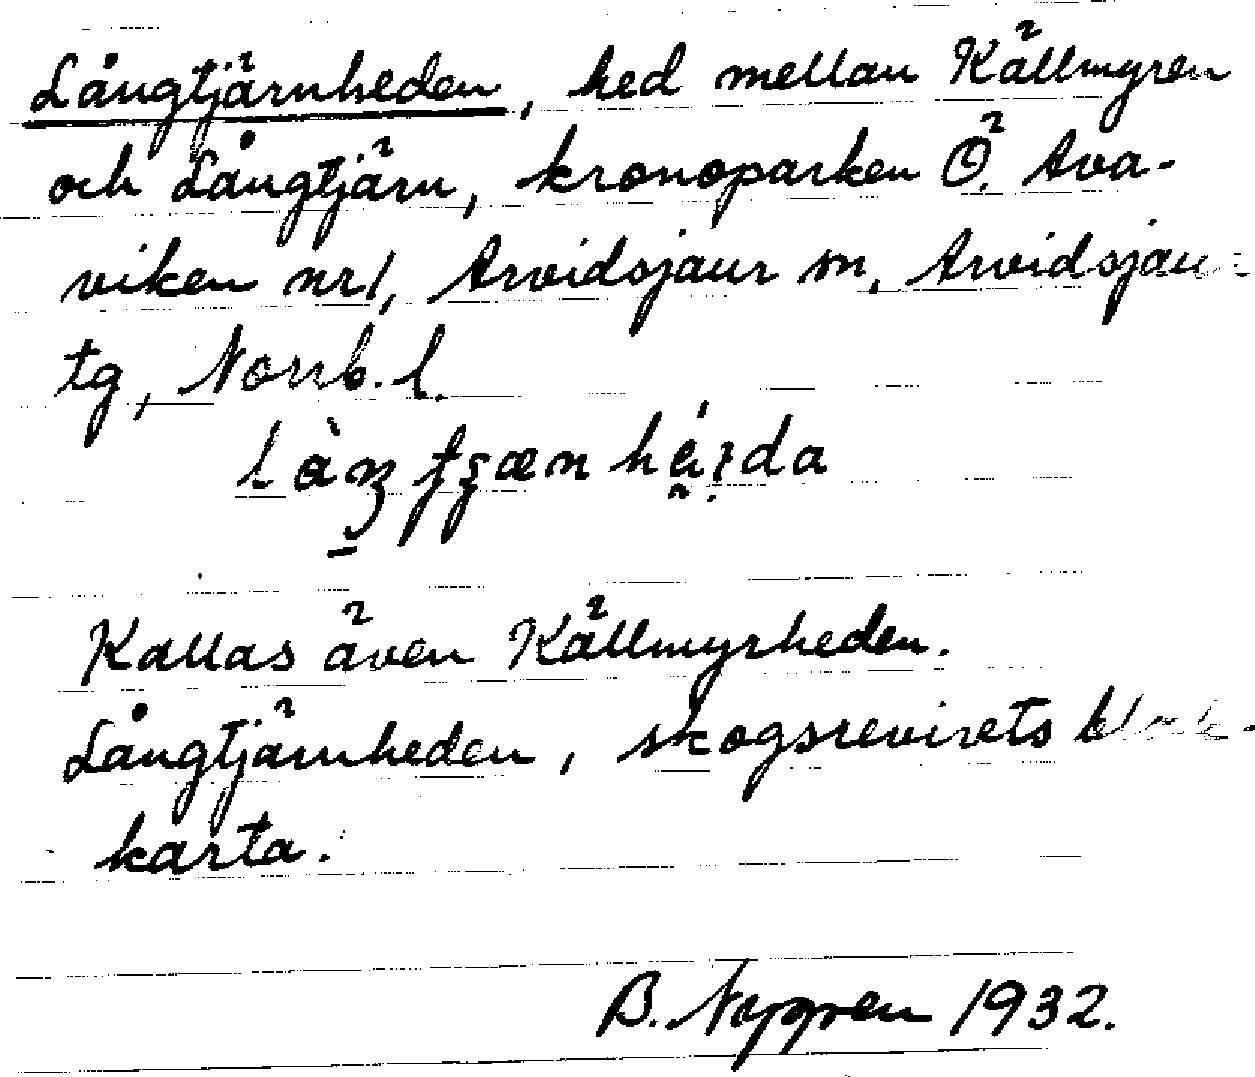 Långtjärnheden, hed mellan Källmyren
och Långtjärn, kronoparken Ö. Ava-
viken nr 1, Arvidsjaur sn, Arvidsjaur
tg, Norrb. l.
Kallas även Källmyrheden.
Långtjärnheden, skogsrevirets block-
karta.
B. 1932.